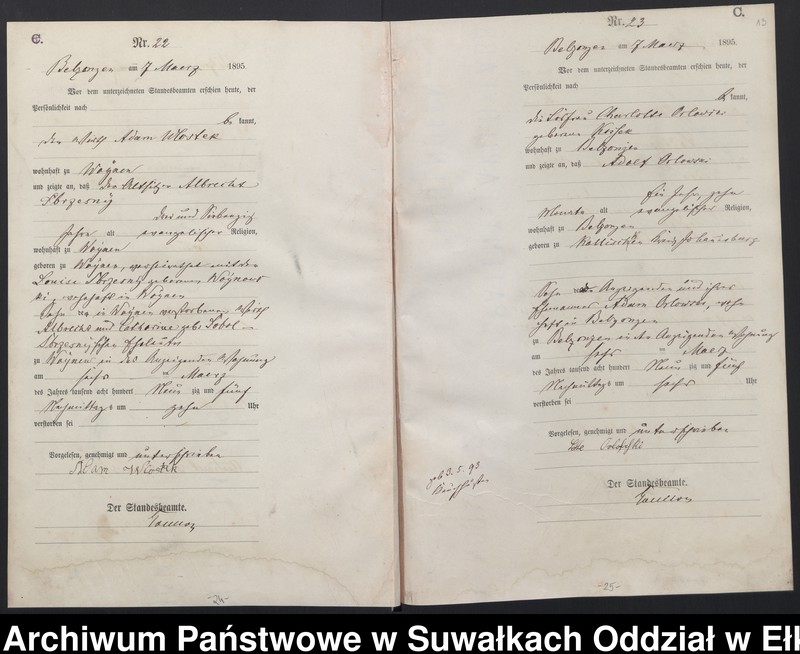 C.
Nr. 22
Belzonzen am 7 Maerz 1895.
Vor dem unterzeichneten Standesbeamten erschien heute, der
Persönlichkeit nach
be kannt,
der Wirth Adam Wlostek
wohnhaft zu Woynen
und zeigte an, daß der Altsitzer Albrecht
Sbrzesny
drei und Siebenzig
Jahre alt evangelischer Religion,
wohnhaft zu Woynen
geboren zu Woynen, verheirathet mit der
Louise Sbrzesny geborenen
wohnhaft in Woynen
Sohn der in Woynen verstorbenen Wirth
Albrecht und Catharine geb. Sobol-
Sbrzesnyschen Eheleute
zu Woynen in des Anzeigenden Wohnung
am sechs ten Maerz
des Jahres tausend acht hundert Neun zig und fünf
Nachmittags um zehn Uhr
verstorben sei
Vorgelesen, genehmigt und unterschrieben
Adam Wlostek
Der Standesbeamte.
-24-
C.
13
Nr. 23
Belzonzen am 7 Maerz 1895.
Vor dem unterzeichneten Standesbeamten erschien heute, der
Persönlichkeit nach
be kannt,
die Losfrau Charlotte Orlowski
geborene
wohnhaft zu Belzonzen
und zeigte an, daß Adolf Orlowski
Ein Jahr, zehn
Monate alt evangelischer Religion,
wohnhaft zu Belzonzen
geboren zu Kallischken Kreis Johannisburg
Sohn der Anzeigenden und ihres
Ehemannes Adam Orlowski, wohn
haft in Belzonzen
zu Belzonzen in der Anzeigenden Wohnung
am sechs ten Maerz
des Jahres tausend acht hundert Neun zig und fünf
Nachmittags um sechs Uhr
verstorben sei
Vorgelesen, genehmigt und unterschrieben
Der Standesbeamte.
geb 3. 5. 93
-25-
Archiwum Państwowe w Suwałkach Oddział w Ełk